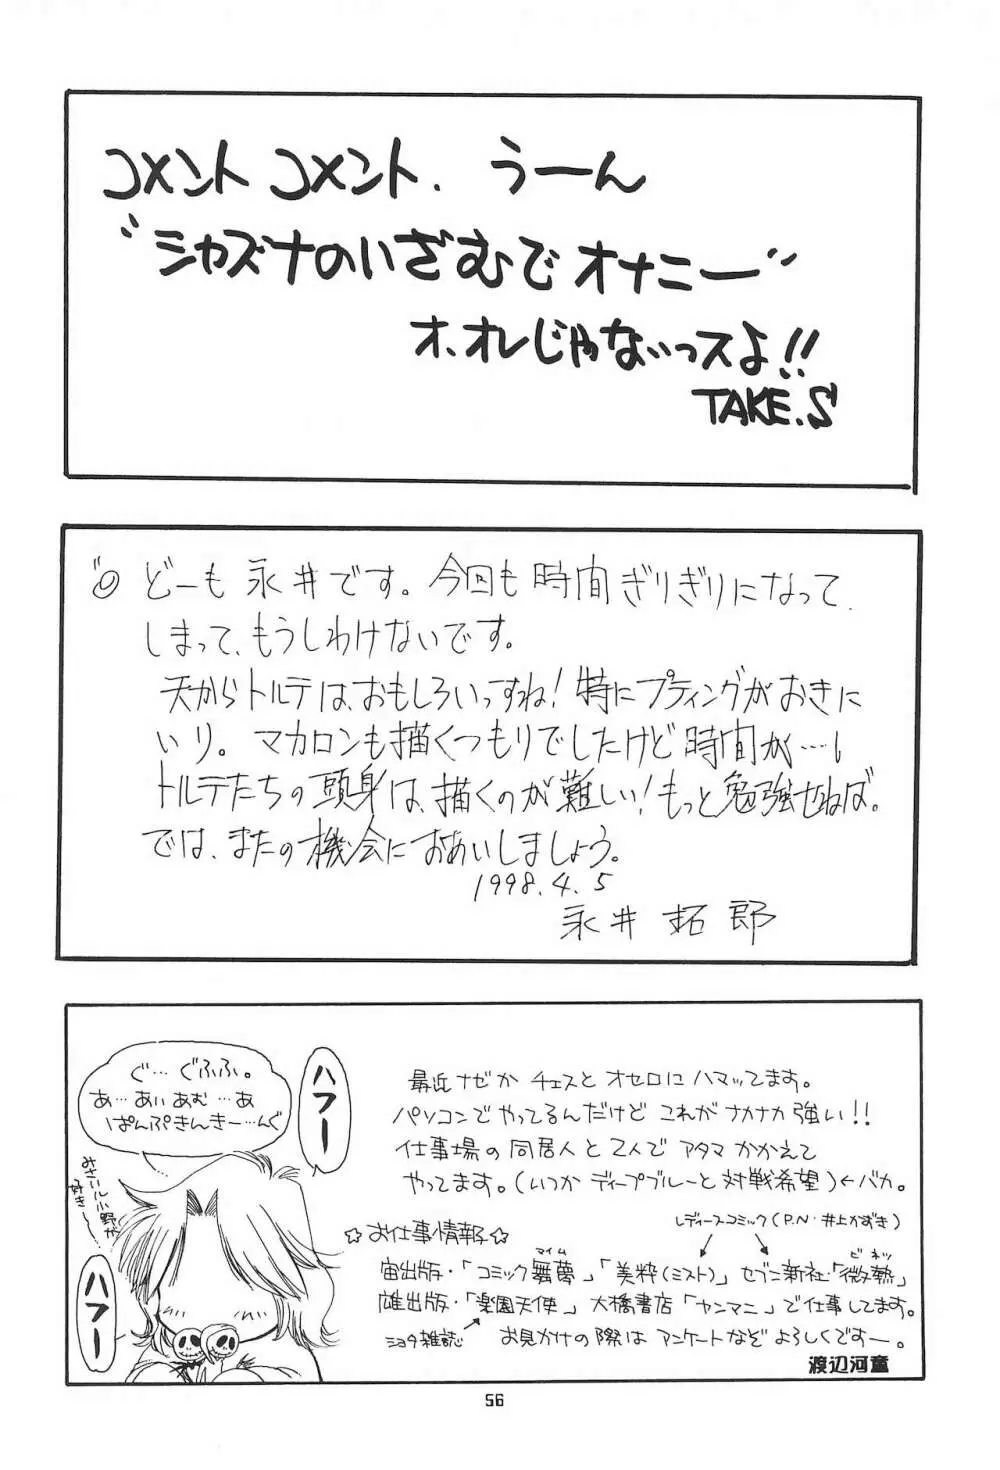 コメント コメント. うーん
"シャズナのいざむでオナニー"
オ、オレじゃないっスよ!!
TAKE.S
どーも 永井です。今回も時間ぎりぎりになって
しまって、もうしわけないです。
天からトルテは、おもしろいっすね!特にプディングがおきに
いり。マカロンも描くつもりでしたけど時間が…。
トルテたちの頭身は、描くのが難しい!もっと勉強せねば。
では、またの機会におあいしましょう。
1998.4.5
永井 拓郎
ぐ…ぐふふ。
あ…あいあむ…あ
ぱんぷきんきー…んぐ
ハフー
みさいル小野が
好き
ハフー
最近ナゼか チェスと オセロに ハマッてます。
パソコンで やってるんだけど これが ナカナカ 強い!!
仕事場の 同居人 と 2人で アタマ かかえて
やってます。(いつか ディープブルーと 対戦希望)←バカ。
レディースコミック(P.N・井上かずき)
☆お仕事情報☆
宙出版・「コミック舞夢」「美粋(ミスト)」セブン新社「微熱」
マイム
ビネツ
雄出版・「楽園天使」大橋書店「ヤンマニ」で仕事してます。
ショタ雑誌
お見かけの際は アンケートなぞ よろしくですー。
渡辺河童
56